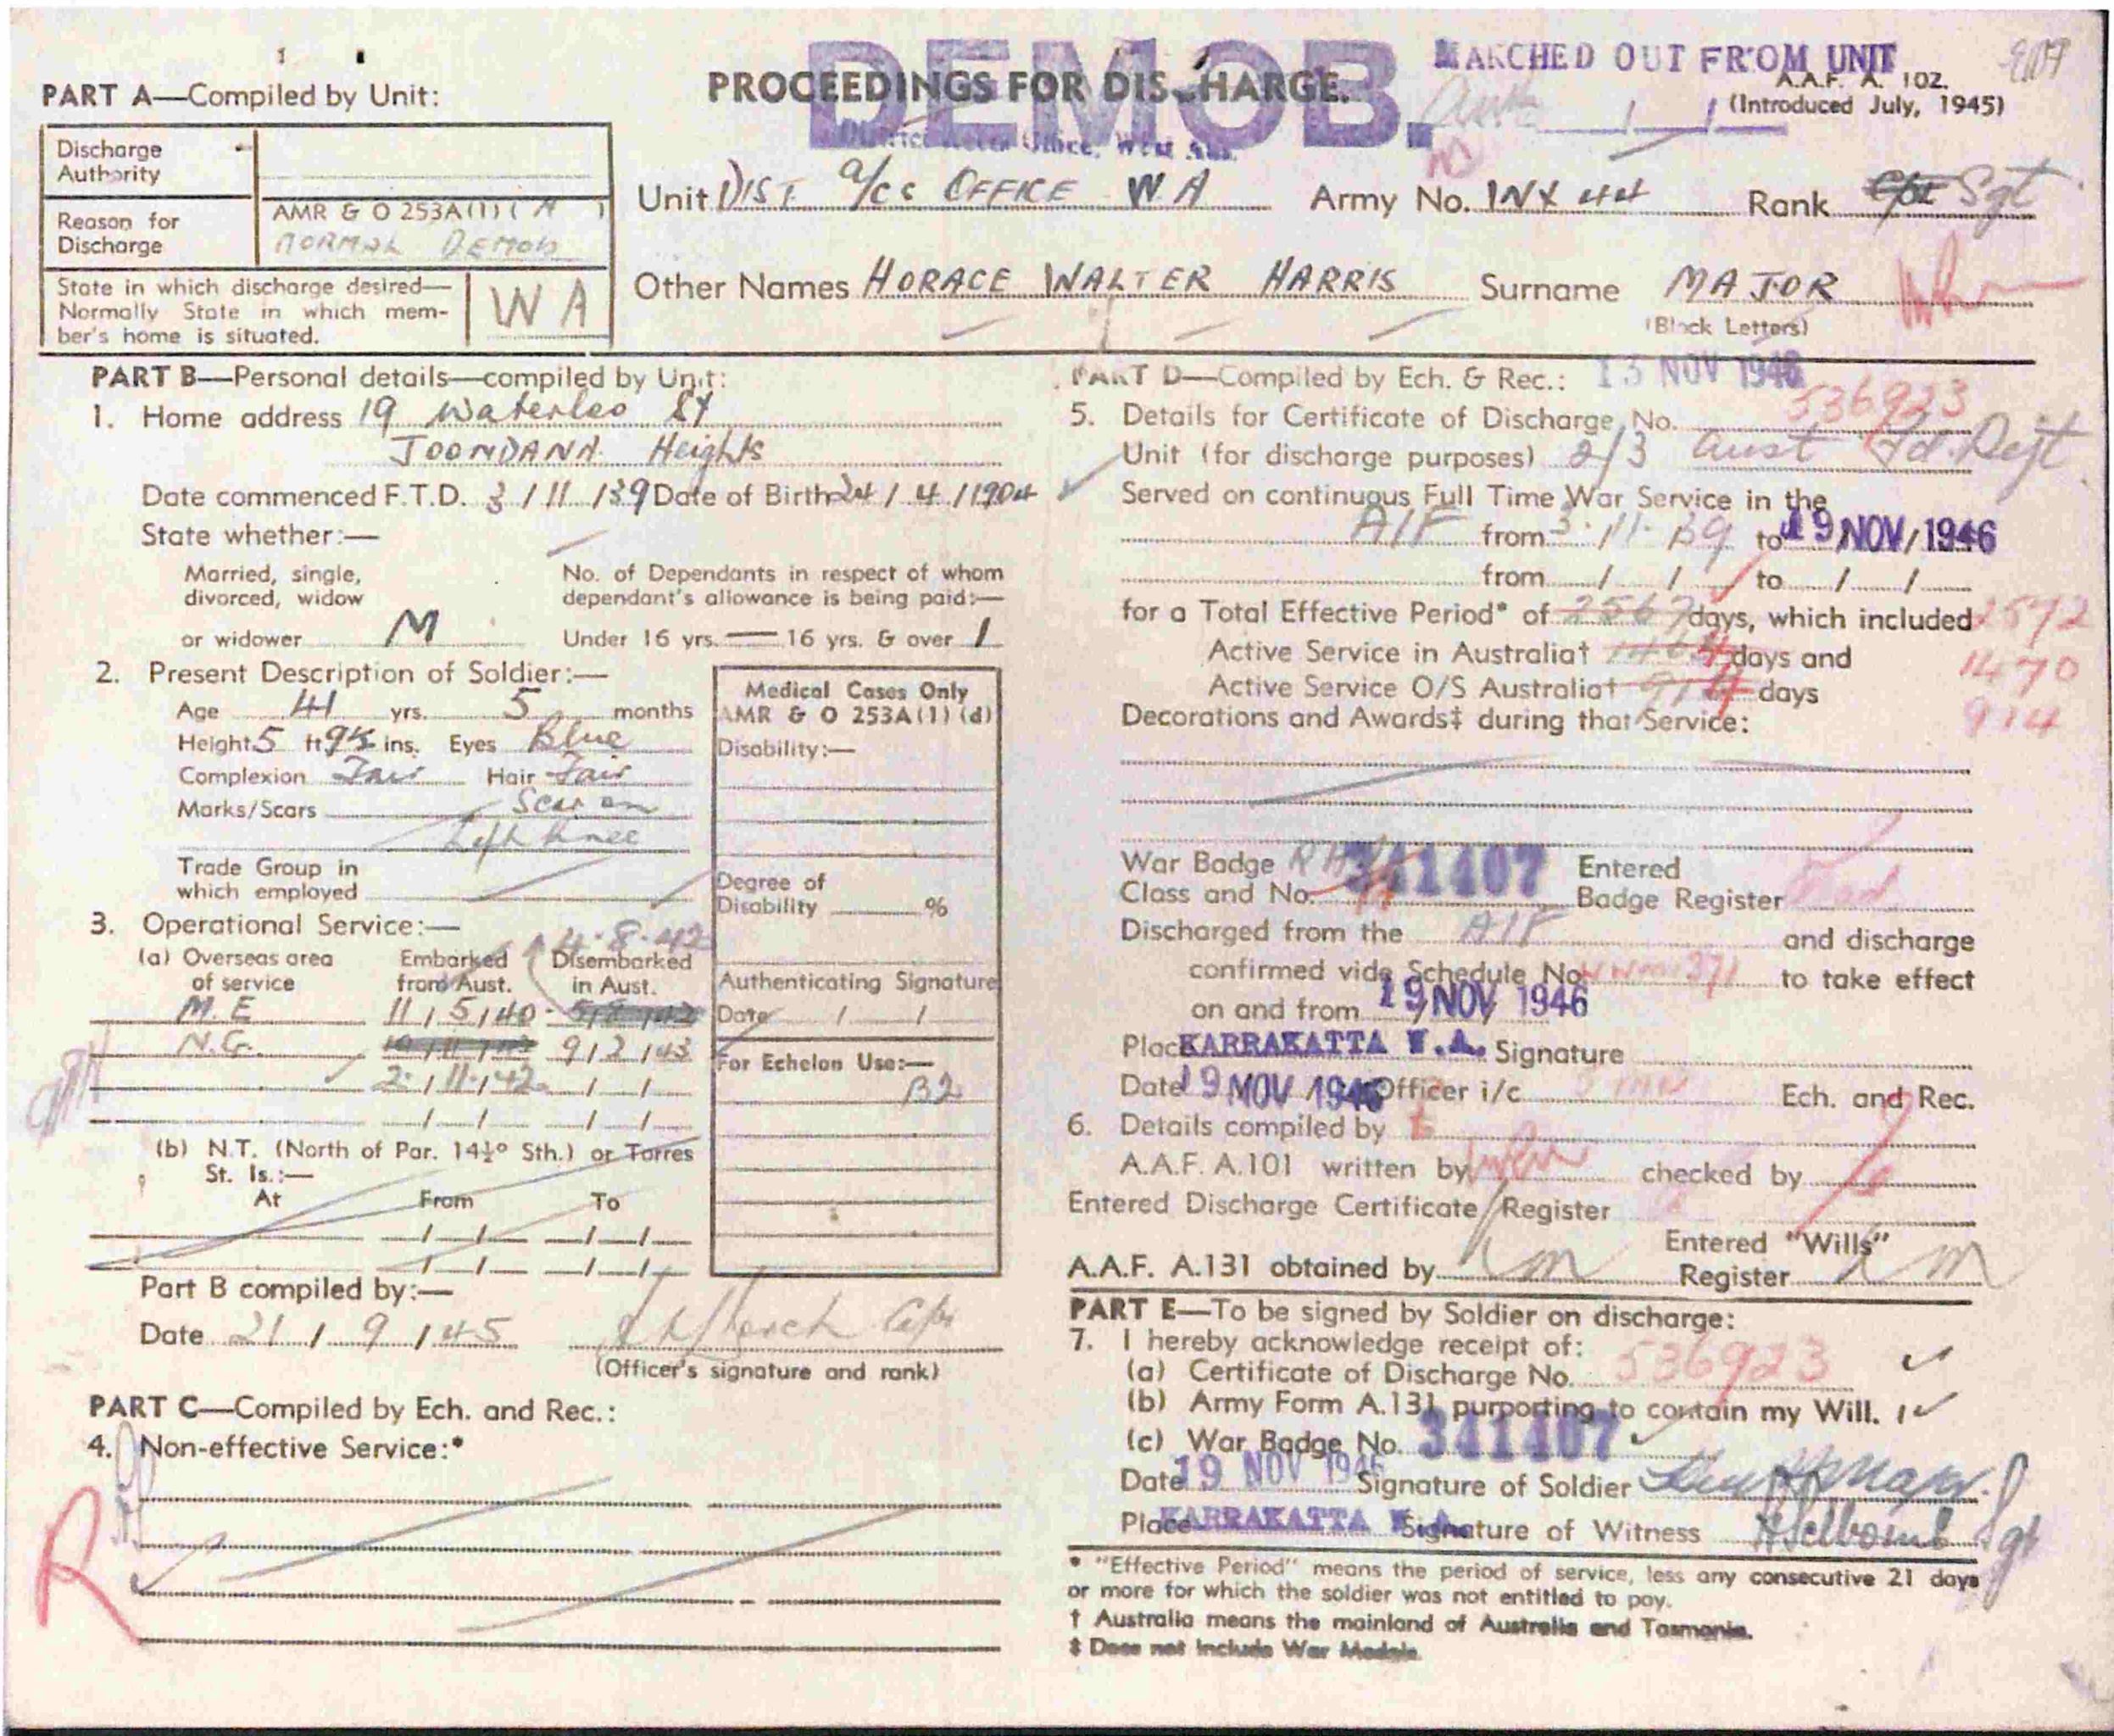 DEMOB.
MARCHED OUT FROM UNIT
PART A—Compiled by Unit:
PROCEEDINGS FOR DISCHARGE.
A.A.F. A. 102.
(Introduced July, 1945)
Discharge
Authority
Reason for
Discharge
AMR & O 253A(1) ( A )
NORMAL DEMOB
State in which discharge desired—
Normally State in which mem-
ber's home is situated.
WA
Unit DIST a/cs OFFICE WA Army No. WX 44 Rank Cpl Sgt
Other Names HORACE WALTER HARRIS Surname MAJOR
(Block Letters)
PART B—Personal details—compiled by Unit:
1. Home address 19 Waterloo St
JOONDANNA Heights
Date commenced F.T.D. 3/11/39 Date of Birth 24/4/1904
State whether:—
Married, single,
divorced, widow
or widower M
No. of Dependants in respect of whom
dependant's allowance is being paid:—
Under 16 yrs. — 16 yrs. & over 1
2. Present Description of Soldier:—
Age 41 yrs. 5 months
Height 5 ft 9½ ins. Eyes Blue
Complexion Fair Hair Fair
Marks/Scars Scar on
Left knee
Trade Group in
which employed
3. Operational Service:—
4.8.42
(a) Overseas area
of service
Embarked
from Aust.
Disembarked
in Aust.
M.E 11/5/40 5/8/42
N.G. 9/2/43
2/11/42 / /
/ / / /
(b) N.T. (North of Par. 14½° Sth.) or Torres
St. Is.:—
At From To
/ / / /
/ / / /
Part B compiled by:—
Date 21/9/45
(Officer's signature and rank)
Medical Cases Only
AMR & O 253A(1) (d)
Disability:—
Degree of
Disability %
Authenticating Signature
Date / /
For Echelon Use:—
B2
PART C—Compiled by Ech. and Rec.:
4. Non-effective Service:*
R
PART D—Compiled by Ech. & Rec.: 13 NOV 1946
5. Details for Certificate of Discharge, No. 536923
Unit (for discharge purposes) 2/3 Aust Fd. Regt
Served on continuous Full Time War Service in the
AIF from 3.11.39 to 19 NOV 1946
from / / to / /
for a Total Effective Period* of 2567 days, which included 2572
Active Service in Australia† 1464 days and 1470
Active Service O/S Australia† 914 days 914
Decorations and Awards‡ during that Service:
War Badge
Class and No. 341407
Entered
Badge Register
Discharged from the AIF and discharge
confirmed vide Schedule No. 371 to take effect
on and from 19 NOV 1946
Place KARRAKATTA W.A. Signature
Date 19 NOV 1946 Officer i/c Ech. and Rec.
6. Details compiled by
A.A.F. A.101 written by checked by
Entered Discharge Certificate Register
A.A.F. A.131 obtained by
Entered "Wills"
Register
PART E—To be signed by Soldier on discharge:
7. I hereby acknowledge receipt of:
(a) Certificate of Discharge No. 536923
(b) Army Form A.131 purporting to contain my Will.
(c) War Badge No. 341407
Date 19 NOV 1946 Signature of Soldier
Place KARRAKATTA W.A. Signature of Witness
* "Effective Period" means the period of service, less any consecutive 21 days
or more for which the soldier was not entitled to pay.
† Australia means the mainland of Australia and Tasmania.
‡ Does not include War Medals.